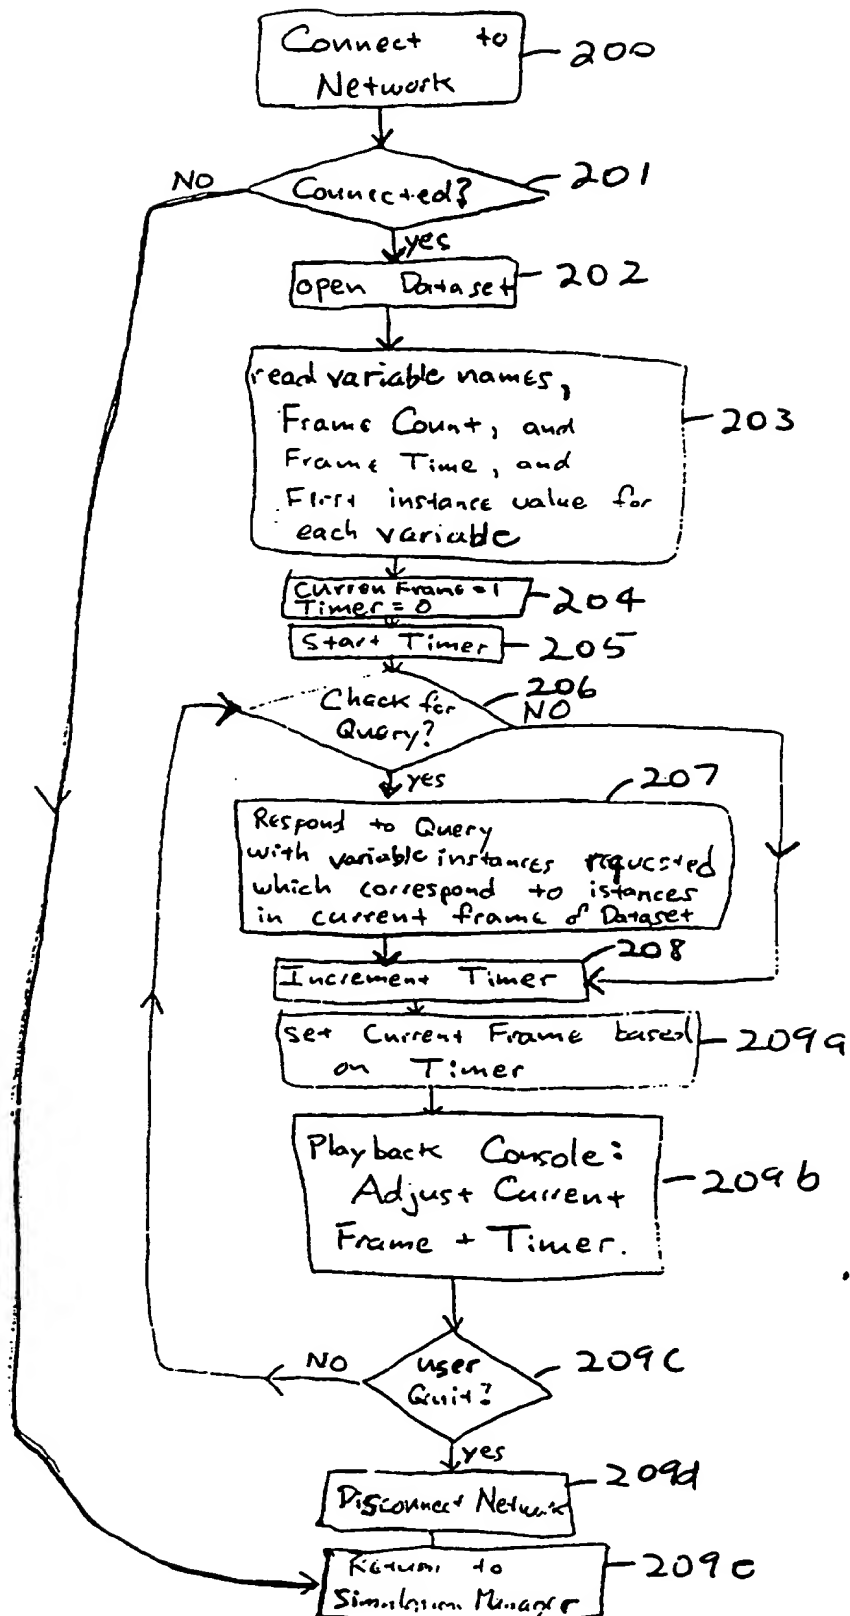 Connect to
Network
200
Connected?
201
NO
yes
open Dataset
202
read variable names,
Frame Count, and
Frame Time, and
First instance value for
each variable
203
Current Frame=1
Timer=0
204
Start Timer
205
Check for
Query?
206
NO
yes
207
Respond to Query
with variable instances requested
which correspond to istances
in current frame of Dataset
208
Increment Timer
set Current Frame based
on Timer
209a
Playback Console:
Adjust Current
Frame + Timer.
209b
user
Quit?
209c
NO
yes
Disconnect Network
209d
Return to
Simulation Manager
209e